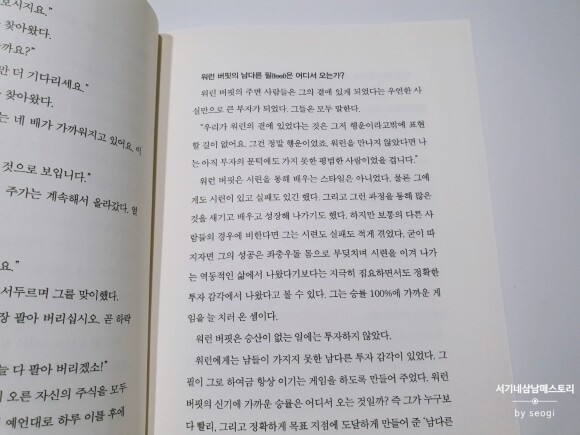 보시지요."
찾아왔다.
까요?"
만 더 기다리세요."
찾아왔다.
는 네 배가 가까워지고 있어요. 이
것으로 보입니다."
주가는 계속해서 올라갔다. 일
요."
서두르며 그를 맞이했다.
장 팔아 버리십시오. 곧 하락
늘 다 팔아 버리겠소!"
오른 자신의 주식을 모두
예언대로 하루 이틀 후에
워런 버핏의 남다른 필(feel)은 어디서 오는가?
워런 버핏의 주변 사람들은 그의 곁에 있게 되었다는 우연한 사
실만으로 큰 부자가 되었다. 그들은 모두 말한다.
"우리가 워런의 곁에 있었다는 것은 그저 행운이라고밖에 표현
할 길이 없어요. 그건 정말 행운이었죠. 워런을 만나지 않았다면 나
는 아직 부자의 문턱에도 가지 못한 평범한 사람이었을 겁니다."
워런 버핏은 시련을 통해 배우는 스타일은 아니었다. 물론 그에
게도 시련이 있고 실패도 있긴 했다. 그리고 그런 과정을 통해 많은
것을 새기고 배우고 성장해 나가기도 했다. 하지만 보통의 다른 사
람들의 경우에 비한다면 그는 시련도 실패도 적게 겪었다. 굳이 따
지자면 그의 성공은 좌충우돌 몸으로 부딪치며 시련을 이겨 나가
는 역동적인 삶에서 나왔다기보다는 지극히 집요하면서도 정확한
투자 감각에서 나왔다고 볼 수 있다. 그는 승률 100%에 가까운 게
임을 늘 치러 온 셈이다.
워런 버핏은 승산이 없는 일에는 투자하지 않았다.
워런에게는 남들이 가지지 못한 남다른 투자 감각이 있었다. 그
필이 그로 하여금 항상 이기는 게임을 하도록 만들어 주었다. 워런
버핏의 신기에 가까운 승률은 어디서 오는 것일까? 즉 그가 누구보
다 빨리, 그리고 정확하게 목표 지점에 도달하게 만들어 준 '남다른
서기네삼남매스토리
by seogi